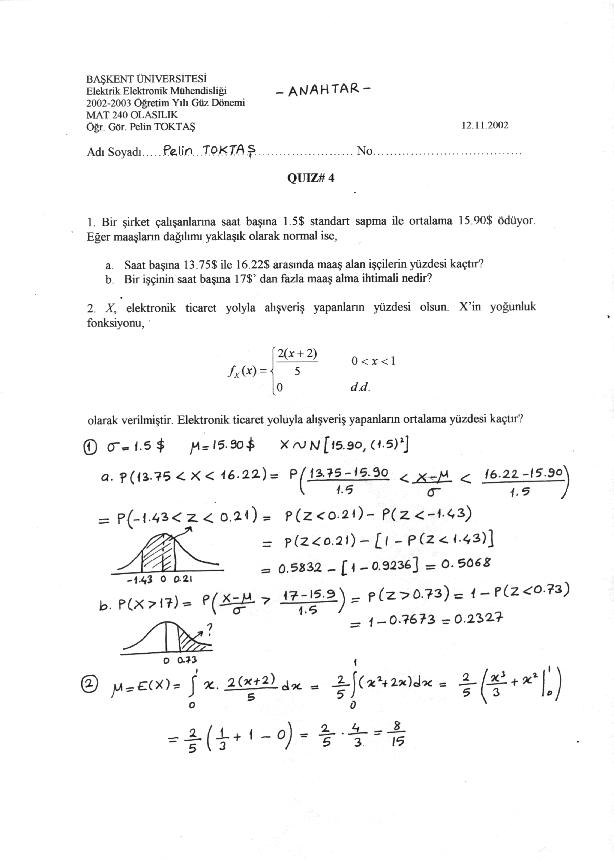 BAŞKENT ÜNİVERSİTESİ
Elektrik Elektronik Mühendisliği
- ANAHTAR -
2002-2003 Öğretim Yılı Güz Dönemi
MAT 240 OLASILIK
Öğr. Gör. Pelin TOKTAŞ 12.11.2002
Adı Soyadı.....Pelin TOKTAŞ........................ No...................................
QUIZ# 4
1. Bir şirket çalışanlarına saat başına 1.5$ standart sapma ile ortalama 15.90$ ödüyor.
Eğer maaşların dağılımı yaklaşık olarak normal ise,
a. Saat başına 13.75$ ile 16.22$ arasında maaş alan işçilerin yüzdesi kaçtır?
b. Bir işçinin saat başına 17$' dan fazla maaş alma ihtimali nedir?
2. X, elektronik ticaret yolyla alışveriş yapanların yüzdesi olsun. X'in yoğunluk
fonksiyonu,
f_X(x) = { 2(x+2)/5 0 < x < 1
0 d.d.
olarak verilmiştir. Elektronik ticaret yoluyla alışveriş yapanların ortalama yüzdesi kaçtır?
① σ = 1.5 $ μ = 15.90 $ X ~ N[15.90, (1.5)²]
a. P(13.75 < X < 16.22) = P((13.75-15.90)/1.5 < (X-μ)/σ < (16.22-15.90)/1.5)
= P(-1.43 < Z < 0.21) = P(Z < 0.21) - P(Z < -1.43)
= P(Z < 0.21) - [1 - P(Z < 1.43)]
= 0.5832 - [1 - 0.9236] = 0.5068
-1.43 0 0.21
b. P(X > 17) = P((X-μ)/σ > (17-15.9)/1.5) = P(Z > 0.73) = 1 - P(Z < 0.73)
= 1 - 0.7673 = 0.2327
?
0 0.73
② μ = E(X) = ∫₀¹ x. 2(x+2)/5 dx = 2/5 ∫₀¹ (x²+2x)dx = 2/5 (x³/3 + x² |₀¹)
= 2/5 (1/3 + 1 - 0) = 2/5 · 4/3 = 8/15